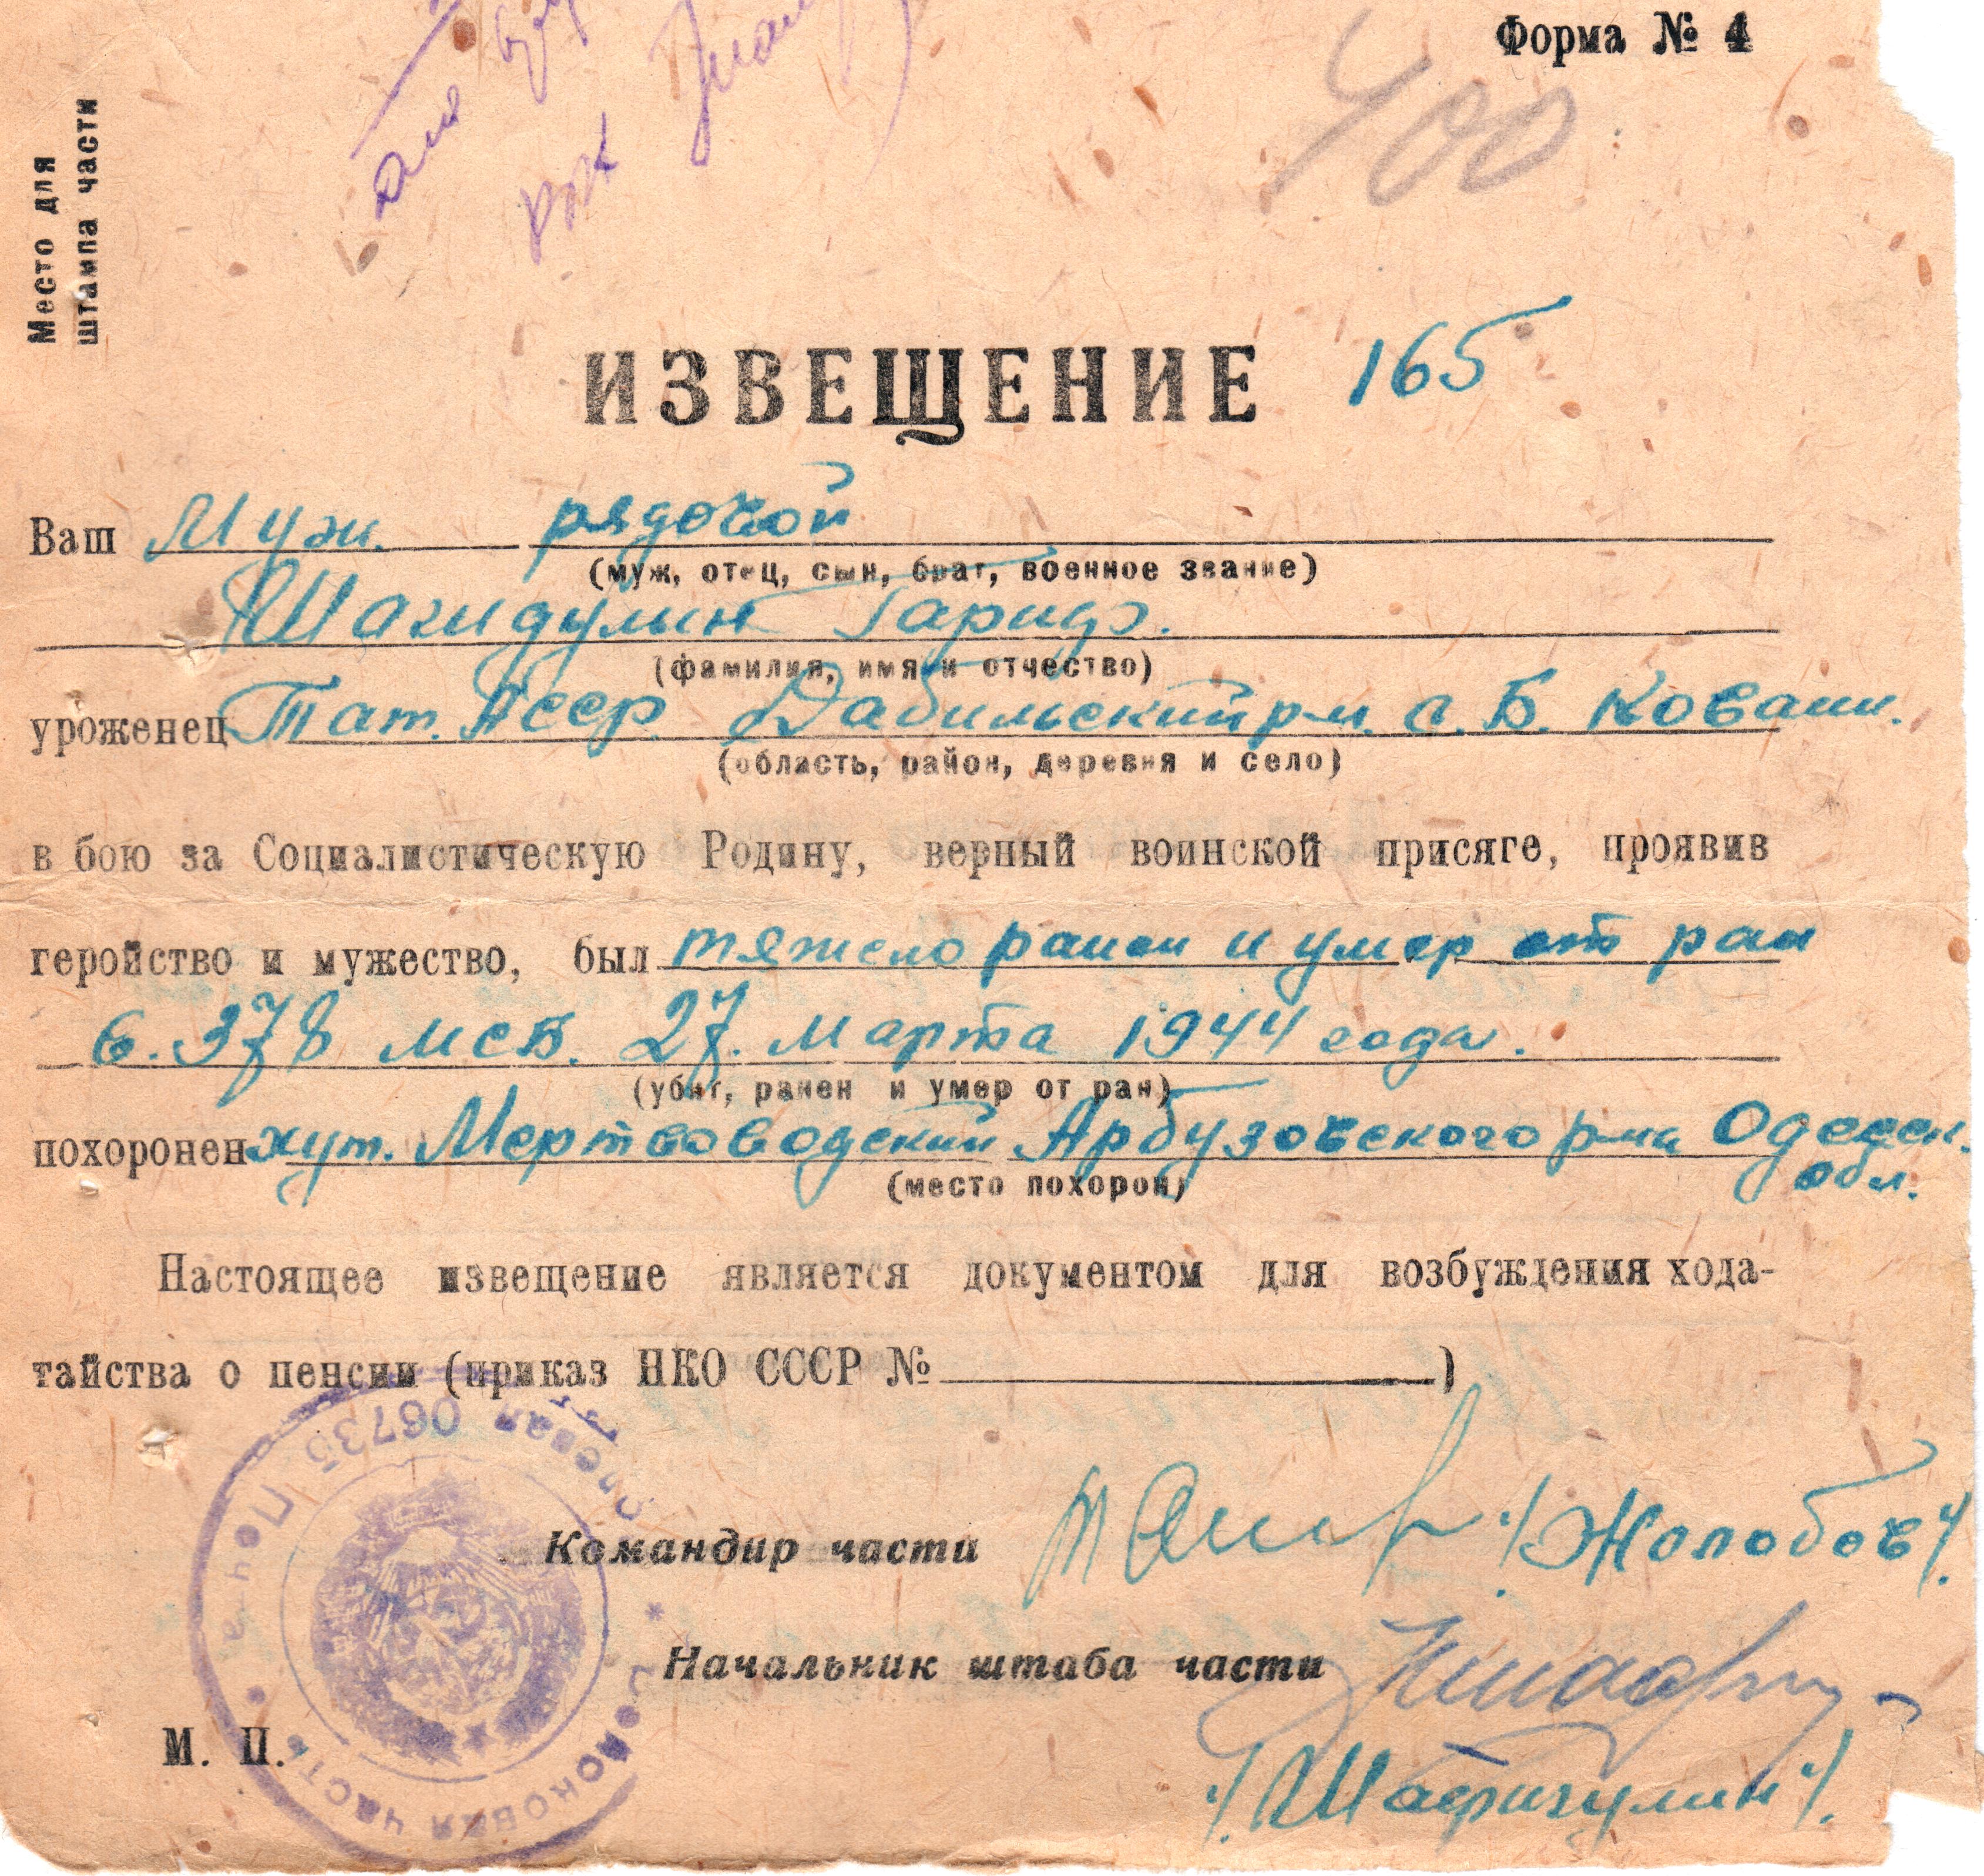 Форма № 4
400
Место для
штампа части
ИЗВЕЩЕНИЕ 165
Ваш Муж. рядовой
(муж, отец, сын, брат, военное звание)
Шагидулин Гариф.
(фамилия, имя и отчество)
уроженец Тат. АССР. р-н. с. Б.
(область, район, деревня и село)
в бою за Социалистическую Родину, верный воинской присяге, проявив
геройство и мужество, был тяжело ранен и умер от ран
в. 378 мсб. 27. марта 1944 года.
(убит, ранен и умер от ран)
похоронен хут. Мертвоводский Арбузовского р-на Одесск.
обл.
(место похорон)
Настоящее извещение является документом для возбуждения хода-
тайства о пенсии (приказ НКО СССР №)
Полевая Почта 06735
Войсковая часть
Командир части /Жолобов/
Начальник штаба части
/Шафигулин/.
М. П.